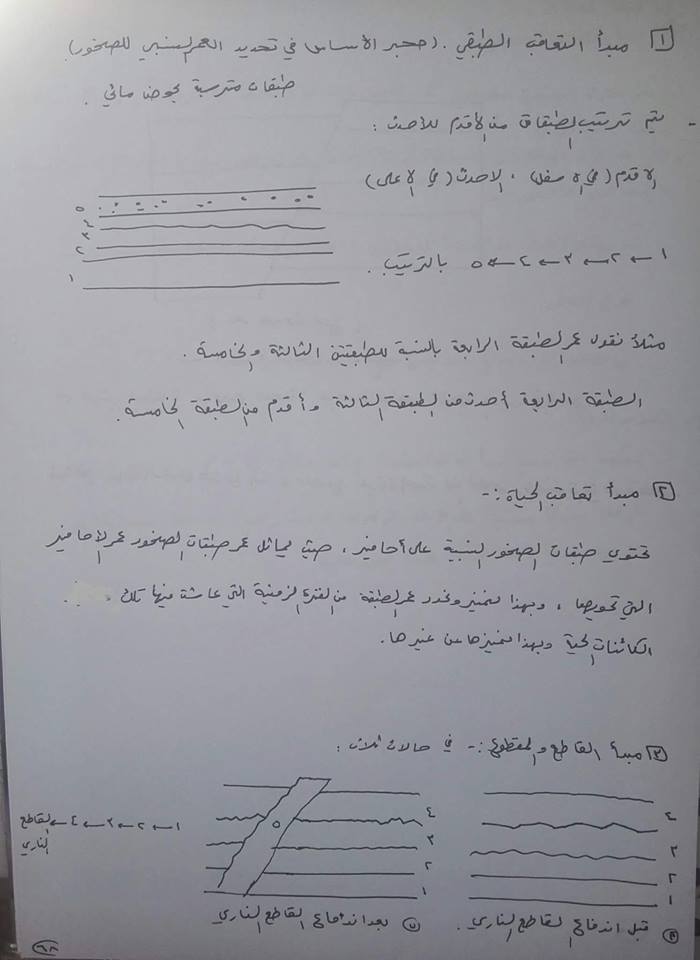 ١ مبدأ التعاقب الطبقي . (حجر الأساس في تحديد العمر النسبي للصخور)
طبقات مترسبة بحوض مائي .
- يتم ترتيب الطبقات من الأقدم للأحدث :
الأقدم (في الأسفل) ، الأحدث (في الأعلى)
٥
٤
٣
٢
١
١ ← ٢ ← ٣ ← ٤ ← ٥ بالترتيب .
مثلاً نقول عمر الطبقة الرابعة بالنسبة للطبقتين الثالثة والخامسة .
الطبقة الرابعة أحدث من الطبقة الثالثة وأقدم من الطبقة الخامسة .
٢ مبدأ تعاقب الحياة :-
تحتوي طبقات الصخور النسبية على أحافير ، حيث يماثل عمر طبقات الصخور عمر الأحافير
التي تحويها ، وبهذا نميز ونحدد عمر الطبقة من الفترة الزمنية التي عاشت فيها تلك
الكائنات الحية وبهذا نميزها عن غيرها .
٣ مبدأ القاطع والمقطوع :- في حالات ثلاث :
٤
٣
٢
١
قبل اندفاع القاطع الناري .
٤
٣
٢
١
٥
بعد اندفاع القاطع الناري
١ ← ٢ ← ٣ ← ٤ ← القاطع
الناري